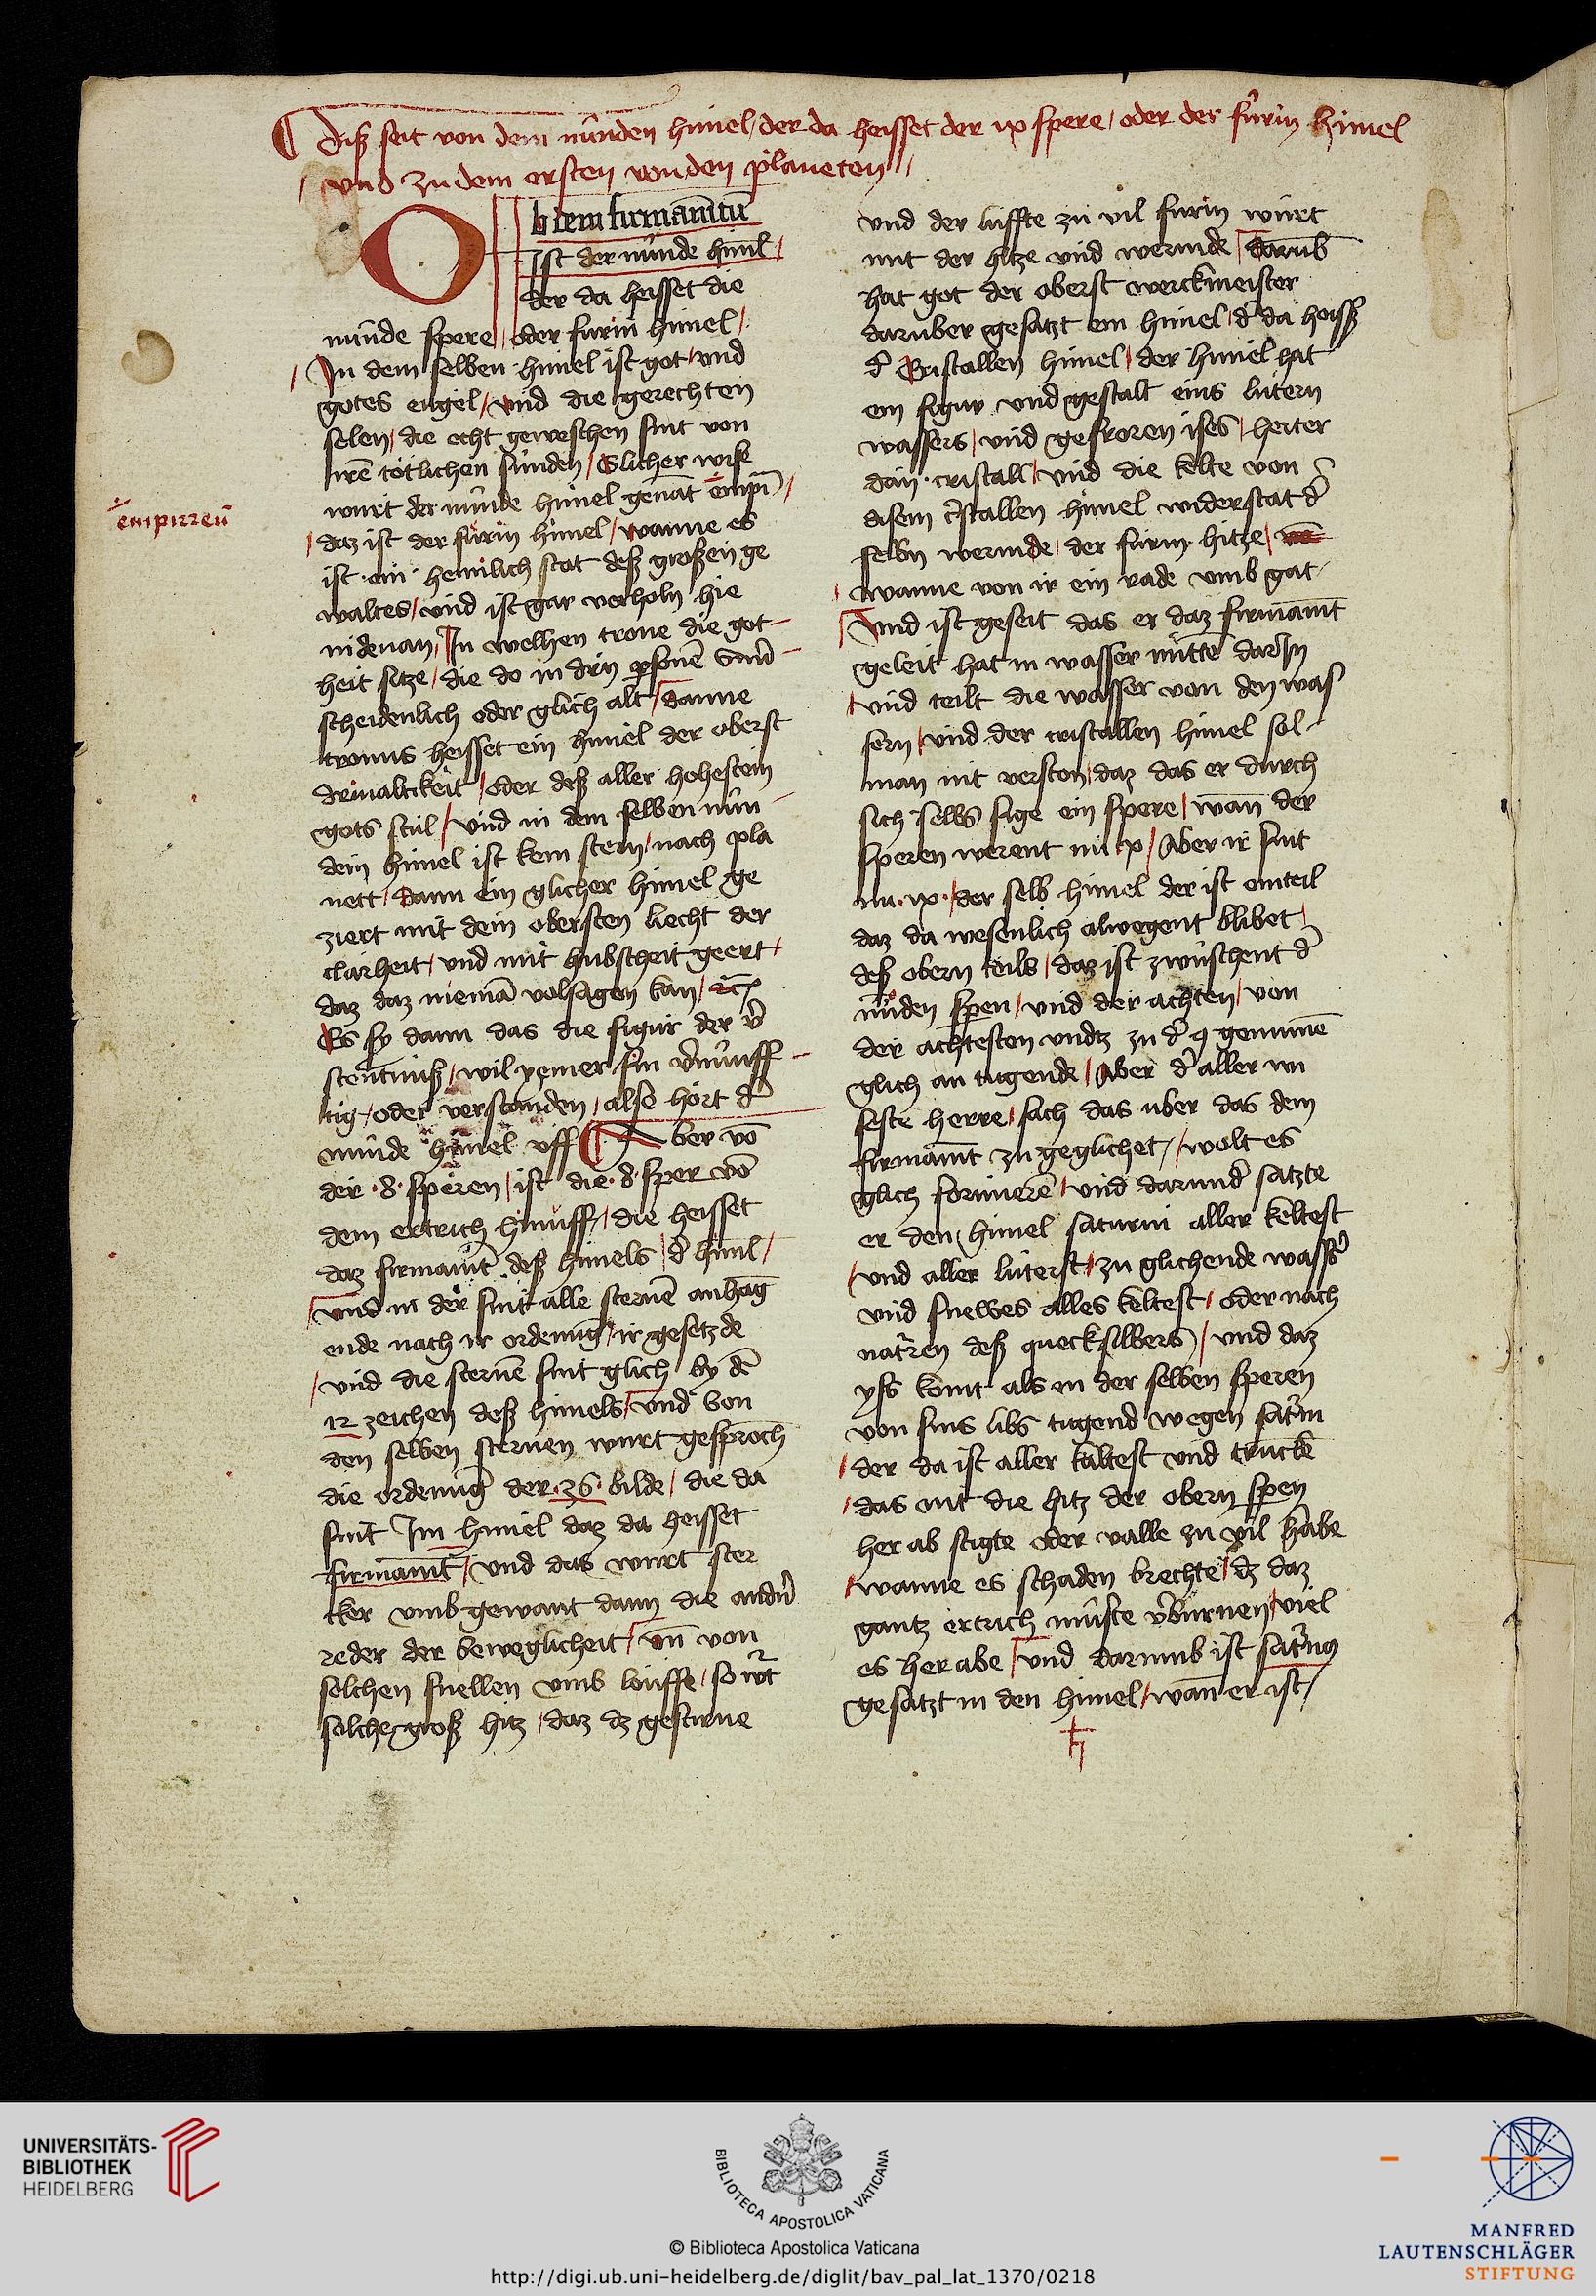 Diß seit von dem nünden himel / der da heisset der ix spere / oder der fürin himel
/ vnd zu dem ersten von den planeten /
Obiem firmamētū
Ist der nünde himl /
der da heisset die
nünde spere / oder fürin himel /
/ In dem selben himel ist got / vnd
gotes engel / vnd die gerechten
selen / die echt geweschen sint von
irē tötlichen sünden / Glicher wise
wurt der nünde himel genāt empi /
empirreū
/ daz ist der fürin himel / wanne es
ist ein heimlich stat deß großen ge
waltes / vnd ist gar verholn hie
nidenan / In welhen trone die got-
heit sitze / die do in drin psonē vnd-
scheidenlich oder glich alt / danne
tronus heisset ein himel der oberst
drinaltikeit / oder deß aller hohestein
gots stůl / vnd in dem selben nün-
dein himel ist kein stern / nach pla
nett / Dann ein glicher himel ge
ziert mit dein obersten liecht der
clarheit / vnd mit hubscheit geert /
daz daz niemā volsagen kan /
Es sy dann das die figur der v̄
stentniß / wil yemer sin v̄nunff-
tig / oder verstanden / alse hört d̄
nünde himel vff ¶ Aber vō
der .8. speren / ist die .8. sper vō
dem ertrich hinuff / die heisset
daz firmamēt deß himels / d̄ himl /
vnd in der sint alle sternē anhāg
ende nach ir ordenūg / ir gesetzde
/ vnd die sternē sint glich by dē
12 zeichen deß himels / vnd von
den selben sternen wurt gesproch
die ordenūg der .36. bilde / die da
sint Im himel daz da heisset
firmamēt / vnd das wurt ster
cker vmb gewant dann die andn̄
reder der beweglicheit / vn̄ von
solchen snellen vmb louffe / so wt
solche groß hitz / daz dz gestirne
vnd der lüffte zů vil fürin würt
mit der hitze vnd wermde / darūb
hat got der oberst werckmeister
darüber gesatzt ein himel / d̄ da heisß
d̄ Cristallen himel / der himel hat
ein figur vnd gestalt eins lutern
wassers / vnd gefroren ises / herter
dan cristall / vnd die kelte von
disem cristallen himel widerstat d̄
selbn wermde / der fürin hitze /
/ wanne von ir ein rade vmb gat
Vnd ist geseit das er daz firmamēt
geleit hat in wasser mittē dar In
/ vnd teilt die wasser von den was
sern / vnd der cristallen himel sol-
man nit verston / daz das er durch
sich selbs sige ein spere / wan̄ der
speren werent nü x / Aber ir sint
nu .ix. / der selb himel der ist ein teil
daz da wesenlich alwegent blibet /
deß obern teils / daz ist zwüschent d̄
nüden spen / vnd der achten / von
der achtesten vndtz zu d̄ 9 genumē
glich an tugende / Aber d̄ aller un
seste herre / sach das uber das dem
firmamēt zu geglichet / wolt es
glich formierē / vnd darund̄ satzte
er den himel saturni aller keltest
/ vnd aller luterst / zu glichende wass̄
vnd snewes alles keltest / oder nach
natren deß quecksilbers / vnd daz
yss komt als in der selben speren
von sins libs tugend wegen satrn
/ der da ist aller kaltest vnd truckē
/ das nit die hitz der obern spen
her ab stigte oder valle zu vil hrabe
/ wanne es schaden brechte / dz daz
gantz ertrich müste v̄burnen / viel
es her abe / vnd darumb ist satrn9
gesatzt in den himel / wan̄ er ist /
♄
UNIVERSITÄTS-
BIBLIOTHEK
HEIDELBERG
BIBLIOTECA APOSTOLICA VATICANA
© Biblioteca Apostolica Vaticana
http://digi.ub.uni-heidelberg.de/diglit/bav_pal_lat_1370/0218
MANFRED
LAUTENSCHLÄGER
STIFTUNG